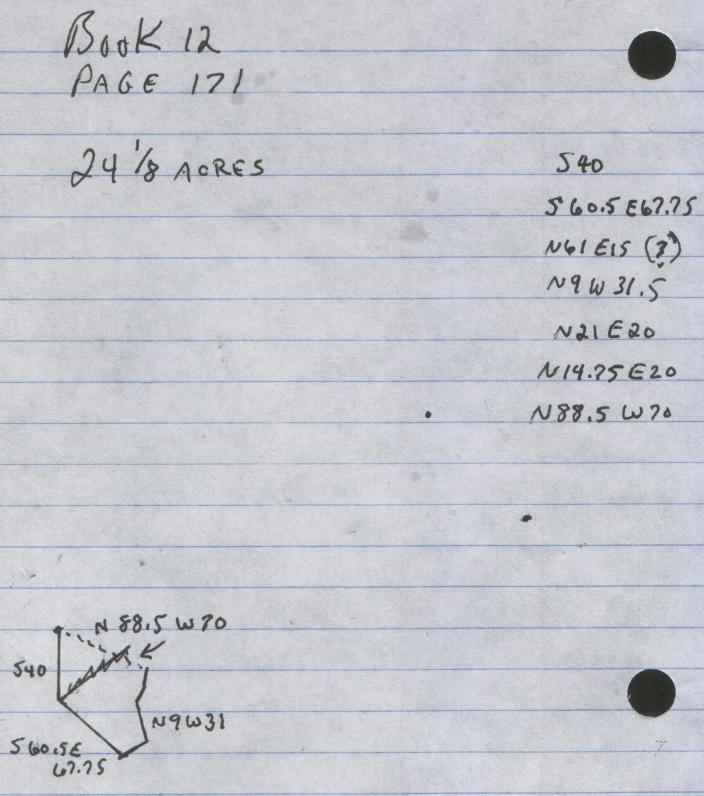 Book 12
PAGE 171
24 1/8 ACRES
S40
S60.5E67.75
N61E15 (?)
N9W31.5
N21E20
N14.75E20
N88.5W70
N 88.5 W70
S40
N9W31
S60.5E
67.75